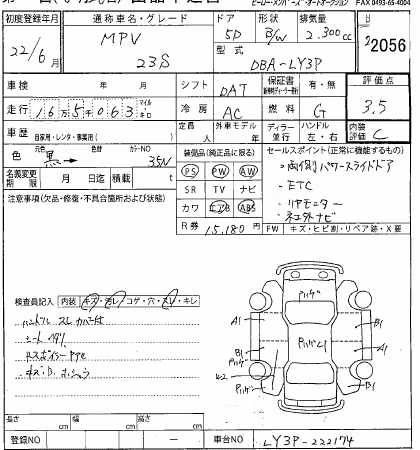 ビーロー・メンバーズ・オートオークション FAX 0493-65-4004
初度登録年月 通称車名・グレード ドア 形状 排気量
22/6 MPV 23S 5D B/W 2.300cc
2056
型式
DBA-LY3P
車検 年 月 シフト DAT 保証書 有・無 評価点
3.5
走行 16万5千063 マイル キロ 冷房 AC 燃料 G
車歴 自家用・レンタ・事業用( ) 定員 人 外車モデル 年 ディーラー 並行 ハンドル 左・右 内装評価 C
色 元色 黒→ 色替 カラーNO 35N
装備品(純正品に限る)
PS PW AW
SR TV ナビ
カワ エアB ABS
セールスポイント(正常に機能するもの)
・両側パワースライドドア
・ETC
・リヤモニター
・社外ナビ
名義変更期限 月 日迄 積載 t
R券 15,180円
FW キズ・ヒビ割・リペア跡・X要
注意事項(欠品・修復・不具合箇所および状態)
検査員記入 内装 キズ・汚レ・コゲ・穴・スレ・キレ
ハンドル スレ カバー付
シート
Rスポイラー
キズ、D、
Pハゲ
A1 B1
Pハゲ
B1 A1
W2 Pハゲ
Pハゲ B1
長さ cm 幅 cm 高さ cm
登録NO ー 車台NO LY3P-222174